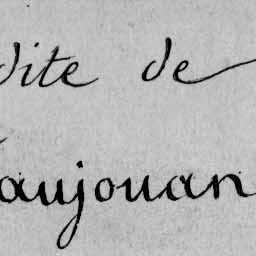 dite de
aujouan